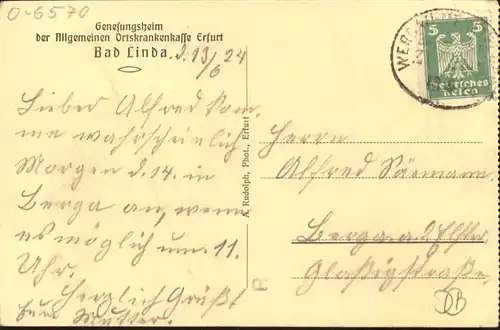 O-6570
Genesungsheim
der Allgemeinen Ortskrankenkasse Erfurt
Bad Linda. d. 13/6 24
Lieber Alfred kom-
me wahrscheinlich
Morgen d. 14. in
Berga an, wenn
es möglich um 11.
Uhr.
Herzlich Grüßt
Mutter.
A. Rudolph, Phot., Erfurt
5 5
Deutsches
Reich
Herrn
Alfred
Berga a. d. Elster
DB